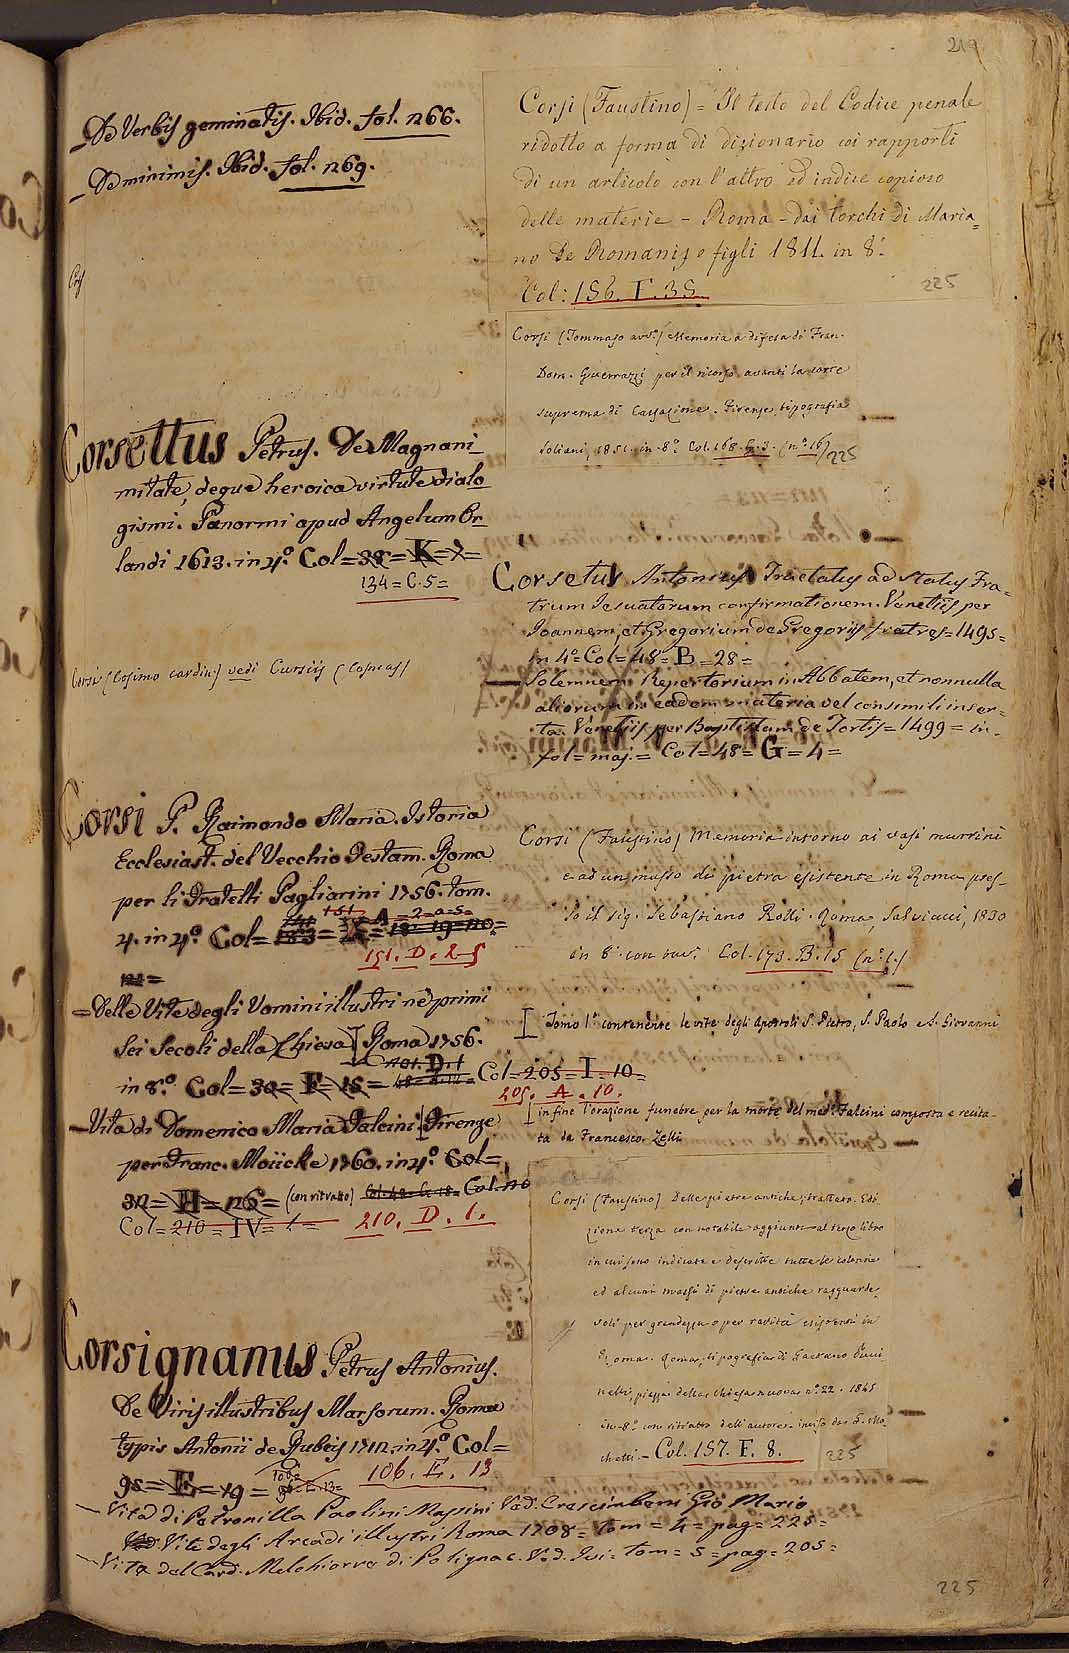 219
De Verbis geminatis. Ibid. fol. 1266.
De minimis. Ibid. fol. 1269.
Cors
Corsettus Petrus. De Magnani_
mitate, deque heroica virtute dialo
gismi. Panormi apud Angelum Or_
landi 1613. in 4.º Col=38=K=7=
134=C.5=
Corsi (Cosimo cardin.) vedi Cursiis (Cosmas)
Corsi P. Raimondo Maria. Istoria
Ecclesiast. del Vecchio Testam. Roma
per li Fratelli Pagliarini 1756. tom.
4. in 4.º Col=
151. D. 2-5
=Delle Vite degli Uomini illustri ne' primi
sei Secoli della Chiesa[Roma 1756.
in 8.º Col=32=F=15= 201. D. 1 Col=205=I=10=
205. A. 10.
Vita di Domenico Maria Falcini[Firenze
per Franc. Moücke 1760. in 4.º Col=
32=H=126= (con ritratto) Col. 48. Col. 210
Col=210=IV=1= 210. D. 1.
Corsignanus Petrus Antonius.
De Viris illustribus Marsorum. Romae
typis Antonii de Rubeis 1712. in 4.º Col=
95=E=19= 106. E. 13
Vita di Petronilla Paolini Massini Ved. Crescimbeni Gio Mario
Vite degli Arcadi illustri Roma 1708= tom=4=pag=225=
Vita del Card. Melchiorre di Polignac. Ved. Ivi=tom=5=pag=205=
Corsi (Faustino)= Il testo del Codice penale
ridotto a forma di dizionario coi rapporti
di un articolo con l'altro ed indice copioso
delle materie - Roma - dai torchi di Maria=
no De Romanis e figli 1811. in 8.º
Col: 156. F. 35.
225
Corsi (Tommaso avv.º) Memoria a difesa di Fran.
Dom. Guerrazzi per il ricorso avanti la corte
suprema di Cassazione. Firenze, tipografia
Soliani, 1851. in-8.º Col. 168. G. 3. (n.º 16)
225
Corsetus Antonius Tractatus ad status Fra=
trum Jesuatorum confirmationem. Venetiis per
Joannem, et Gregorium de Gregoriis fratres=1495=
in 4.º Col=48=B=28=
Solemnem Repertorium in Abbatem, et nonnulla
aliorum in eadem materia vel consimili inser=
ta. Venetiis per Baptistam de Tortis=1499=in.
fol=maj.= Col=48=G=4=
Corsi (Faustino) Memoria intorno ai vasi murrini
e ad un masso di pietra esistente in Roma pres-
so il sig. Sebastiano Rolli. Roma, Salviucci, 1830
in 8.º con rav. Col. 173. B. 15 (n.º 1.)
[Tomo 1.º contenente le vite degli Apostoli S. Pietro, S. Paolo e S. Giovanni
[in fine l'orazione funebre per la morte del med.º Falcini composta e recita-
ta da Francesco Zelli
Corsi (Faustino) Delle pietre antiche, trattato. Edi
zione terza con notabile aggiunta al terzo libro
in cui sono indicate e descritte tutte le colonne
ed alcuni massi di pietre antiche ragguarde
voli per grandezza o per rarità esistenti in
Roma. Roma, tipografia di Gaetano Pucci
nelli, piazza della chiesa nuova n.º 22. 1845
in-8.º con ritratto dell'autore inciso da S. Mo
chetti. - Col. 157. F. 8.
225
225